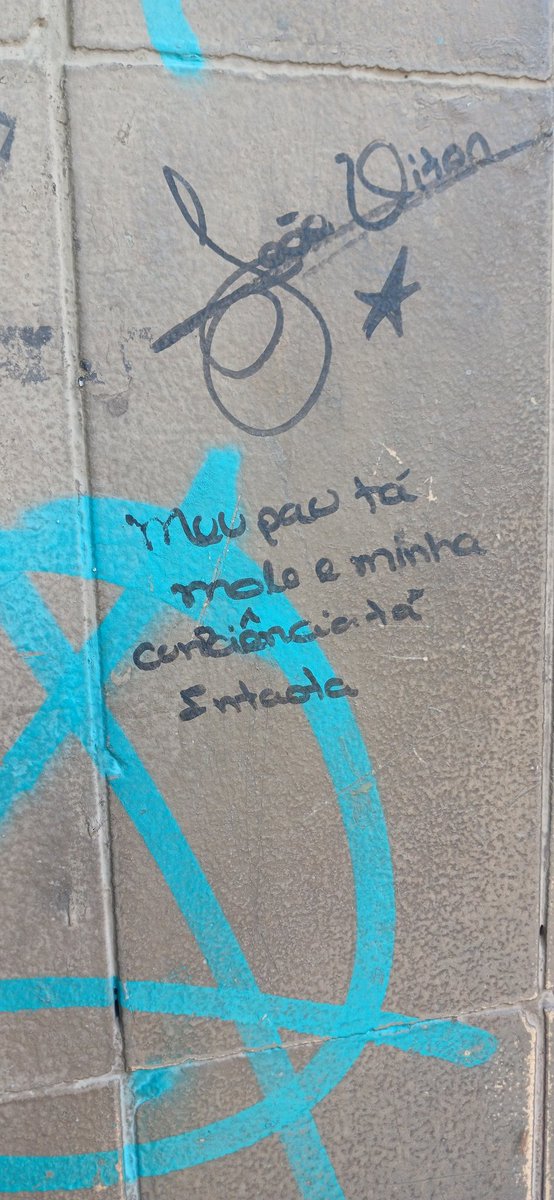 João Vitor
Meu pau tá
mole e minha
conciência tá
Intaota